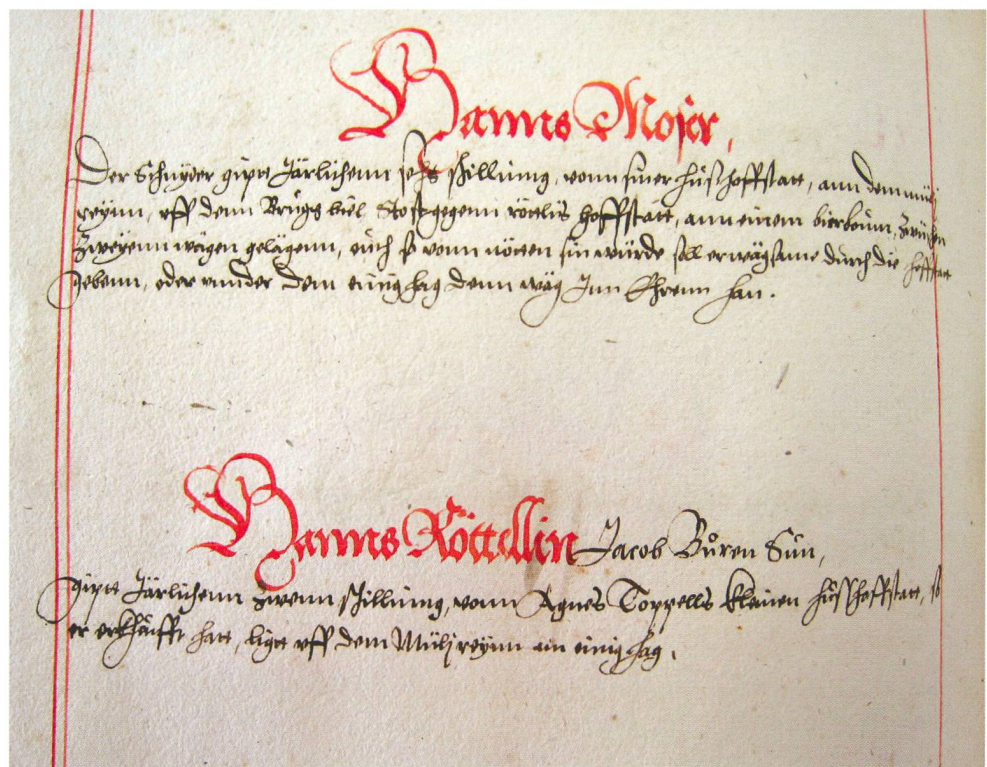 Hanns Moser,
Der Schnyder gipt Järlichenn sechs schilling, vonn siner hußhoffstatt, ann dem mülj
reynn, uff denn Brügg büel Stost gegenn röttlis hoffstatt, ann einem bierboum, zwüschen
zweyenn wägen gelägenn, ouch so vonn nötten sin würde soll er wägsame durch die hoffstatt
gebenn, oder unnder dem einig hag denn wäg Inn Ehrenn han.
Hanns Röttellin Jacob Bůren Sun,
gipt Järlichenn zwenn schilling, vonn Agnes Toppells kleinen hußhoffstatt, so
er erkhaufft hatt, ligt uff dem Mülj reynn am einig hag.